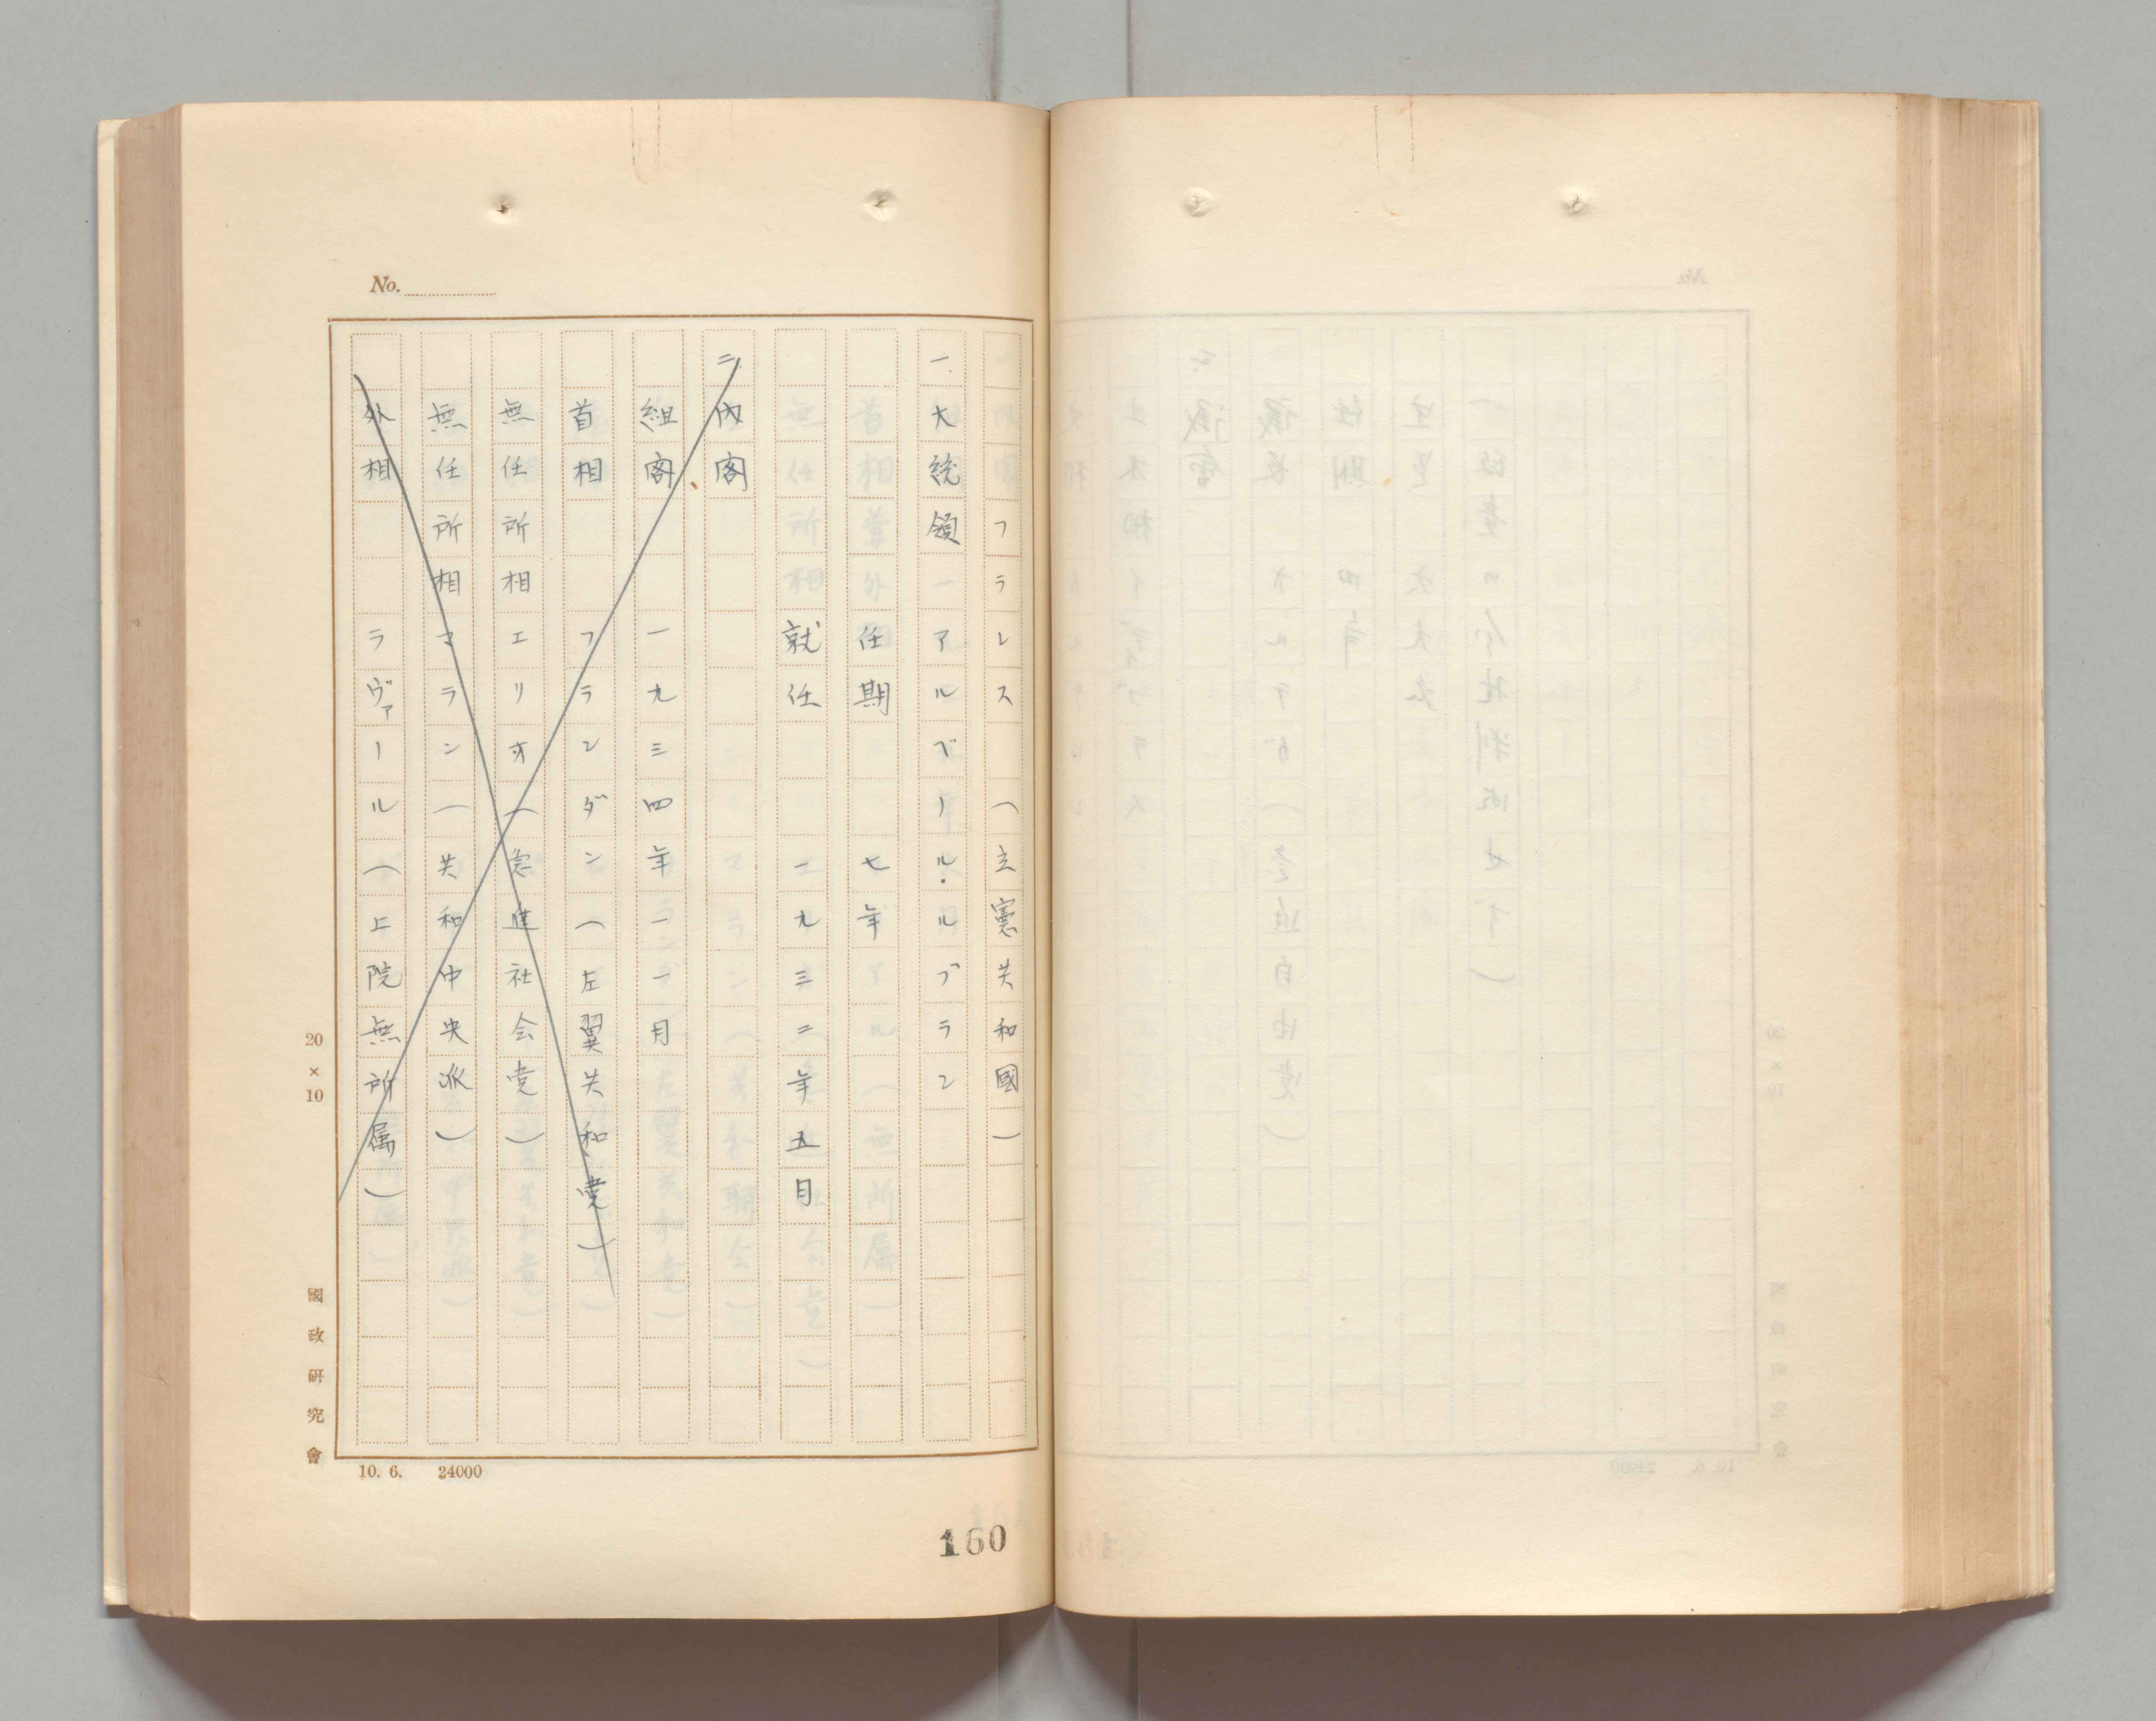 No.
フラレス （立憲共和國）
一.大統領 アルベール・ルブラン
任期 七年
就任 一九三二年五月
二.内閣
組閣 一九三四年一一月
首相 フランダン（左翼共和党）
無任所相 エリオ（急進社会党）
無任所相 マラン（共和中央派）
外相 ラヴァール（上院無所属）
20×10
國政研究會
10. 6. 24000
160